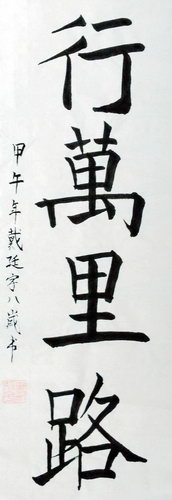 行萬里路
甲午年戴廷宇八歲书